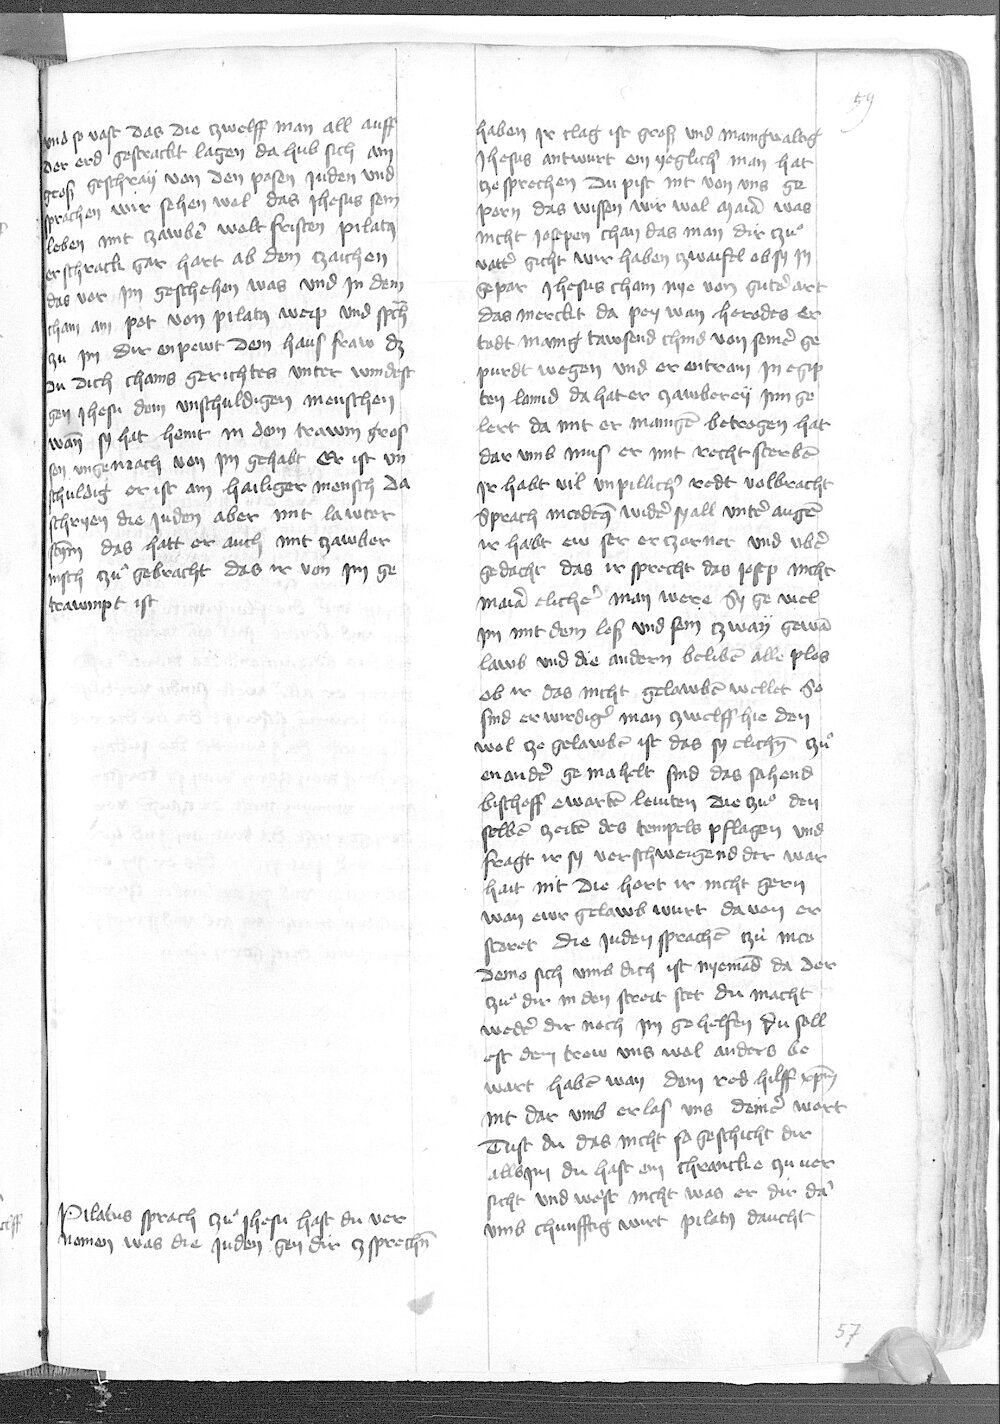 59
vnd so vast das die czwelff man all auff
der erd gestrackt lagen da hub sich ain
gros geschraÿ von den posen juden vnd
sprachen wir sehen wol das jhesus sein
leben mit czawbē wolt fristen pilatꝰ
erschrack gar hart ab dem czaichen
das vor jm geschehen was vnd jn dem
cham ain pot von pilatꝰ weip vnd sprach
zu jm dir enpewt dein haus fraw dz
du dich chains gerichtes vnter windest
gen jhesu dem vnschuldigen menschen
wan̄ sy hat heint in dem trawm gros
sen vngemach von jm gehabt Er ist vn
schuldig er ist ain hailiger mensch Da
schryen die juden aber mit lawter
stym̄ das hatt er auch mit czawber
nisch czů gebracht das ir von jm ge
trawmpt ist
Pilatus sprach czů jhesu hast du ver
nomen was die juden gen dir czsprechn̄
haben jr clag ist gros vnd manigvaltig
Jhesus antwurt ein yeglich' man hat
cze sprechen Du pist nit von vns ge
porn das wissen wir wol maria was
nicht josepen chan das man dir czů
vatt' gicht wir haben czwaifel ob sy jn
gepar Jhesus cham nye von gut' art
das merckt da pey wan herodes er
tödt manig tawsend chind von sein' ge
purdt wegen vnd er entran jn egip
ten lannd da hat er czawbereÿ jnn ge
lert da mit er manigē betrogen hat
dar vmb mus er mit recht sterbē
jr habt vil vnpillich' redt volbracht
Sprach nicodemꝰ wider sy all vnter augē
ir habt ew ser erczornet vnd vbel
gedacht das ir sprecht das josep nicht
maria elicher man were Sy ge viel
jm mit dem los vnd sein czwaÿ gewan
lawb vnd die andern belibē alle plos
ob ir das nicht gelawbē wellet So
sind erwirdig' man czwelff hie den
wol cze gelawbē ist das sy elichn̄ czů
enand' gemahelt sind das sahend
bischoff ewartē leuiten Die czů den
selbē czeitē des tempels pflagen vnd
fragt ir sy verschweigend der war
hait nit Die hort ir nicht gern
wan ewr gelawb wurt da von er
storet Die juden sprachē czů nico
demo sich vmb dich ist nyemād da der
czů dir in den streit stet du macht
wed' dir noch jm gehelfen du soll
est dein trew vns wol anders be
wart habē wan dein red hilff xp̄m
nit dar vmb erlas vns dein' wort
Tust du das nicht so geschicht dir
alls jm du hast ein chrancke zuuer
sicht vnd west nicht was er dir da
vmb chunfftig wirt pilatꝰ daucht
57